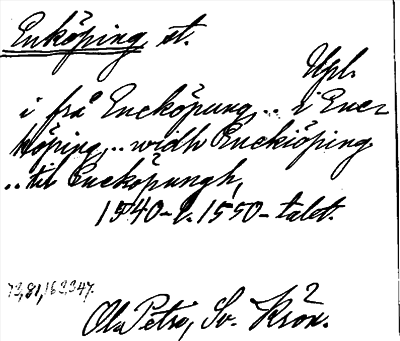 Enköping, st.
Upl.
i frå Enekópung .. i Enec
köping, .. widh Enekiöping
.. til Enekópungh,
1540- o. 1550-talet.
73, 81, 163, 347.
Ol. Petrö, Sv. Krön.